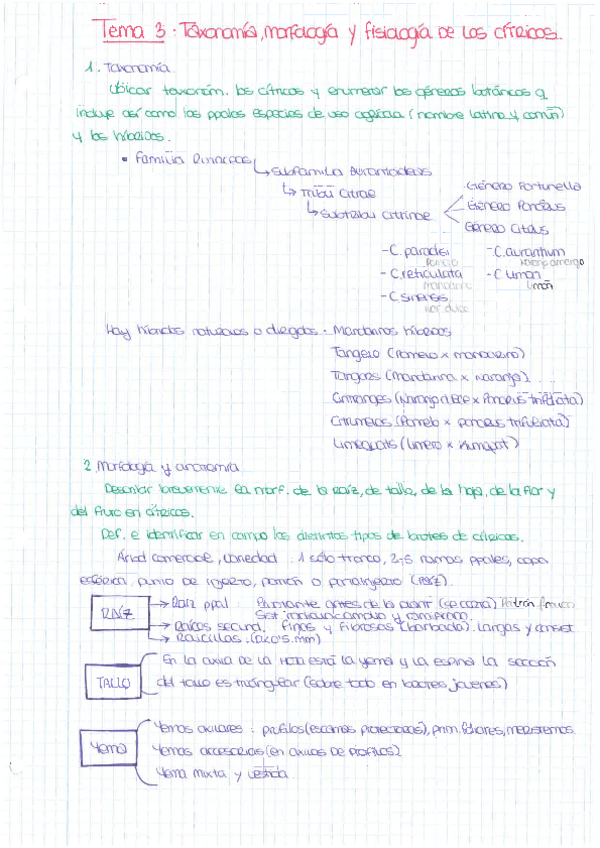 Tema 3: Taxonomía, morfología y fisiología de los cítricos.
1. Taxonomía
Ubicar taxonóm. los cítricos y enumerar los géneros botánicos q
incluye así como las ppales especies de uso agrícola (nombre latino y común)
y los híbridos.
• Familia Rutáceas
Subfamilia Aurantoideas
Tribu Citrae
Subtribu Citrinae
Género Fortunella
Género Poncirus
Género Citrus
- C. paradisi - C. aurantium
pomelo naranjo amargo
- C. reticulata - C. limon
mandarino limón
- C. sinensis
nar. dulce
Hay híbridos naturales o dirigidos. Mandarinos híbridos
Tangelo (Pomelo x mandarino)
Tangors (Mandarina x Naranjo)...
Citranges (Naranjo dulce x Poncirus trifoliata)
Citrumelos (Pomelo x poncirus trifoliata)
Limequats (Limero x Kumquat)
2. Morfología y anatomía
Describir brevemente la morf. de la raíz, de tallo, de la hoja, de la flor y
del fruto en cítricos.
Def. e identificar en campo los distintos tipos de brotes de cítricos.
Árbol comercial, variedad: 1 sólo tronco, 2-5 ramas ppales, copa
esférica, punto de injerto, patrón o portainjerto (raíz).
RAÍZ
Raíz ppal: Pivotante antes de la plant (se corta) Patrón franco
Sist. radicular amplio y ramificado.
Raíces secund. Finas y fibrosas (barbada). Largas y consist.
Raicillas. (pelos mm)
TALLO
En la axila de la hoja está la yema y la espina. La sección
del tallo es triángular (sobre todo en brotes jovenes)
Yema
Yemas axilares: profilos (escamas protectoras), prim. foliares, meristemos.
Yemas accesorias (en axilas de profilos)
Yema mixta y vestida.